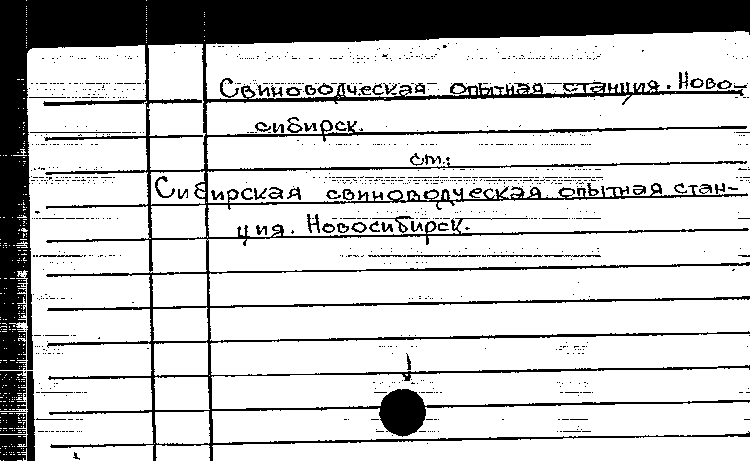 Свиноводческая опытная станция. Ново-
сибирск.
см.:
Сибирская свиноводческая опытная стан-
ция. Новосибирск.